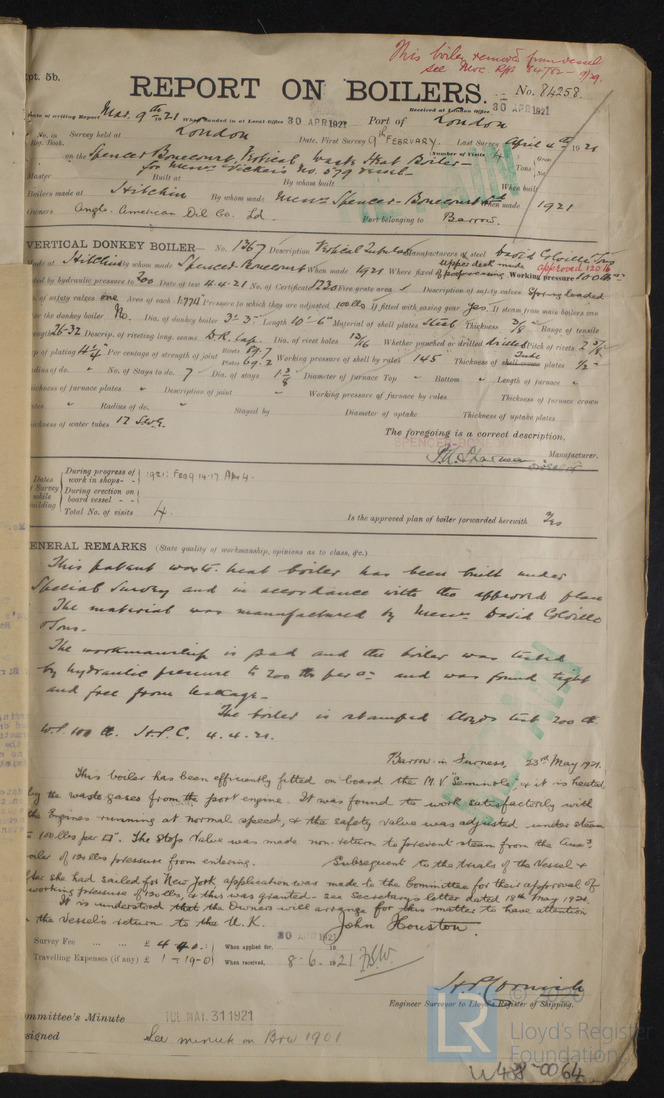 This boiler removed from vessel
see Mcc Rpt 84782 - 9/29.
pt. 5b.
REPORT ON BOILERS.
No. 84258.
Received at London Office 30 APR 1921
Date of writing Report Mar. 9th 1921 When handed in at Local Office 30 APR 1921 Port of London
No. in Reg. Book. Survey held at London Date, First Survey 9th FEBRUARY. Last Survey April 4th 1921
Number of Visits 4
on the Spencer Bonecourt Vertical Waste Heat Boiler
for Messrs Vickers No. 579 vessel
Gross
Tons
Master Built at By whom built When built
Boilers made at Hitchin By whom made Messrs Spencer-Bonecourt Ld When made 1921
Owners Anglo. American Oil Co. Ld. Port belonging to Barrow.
VERTICAL DONKEY BOILER— No. 1367 Description Vertical Tubular Manufacturers of steel David Colville & Sons
Made at Hitchin By whom made Spencer-Bonecourt When made 1921 Where fixed Upper deck inside Working pressure 100 lbs
approved 120 lb
tested by hydraulic pressure to 200 Date of test 4.4.21 No. of Certificate Fire grate area Description of safety valves Spring loaded
No. of safety valves one Area of each 1.774 Pressure to which they are adjusted 100 lbs If fitted with easing gear Yes. If steam from main boilers can
enter the donkey boiler No. Dia. of donkey boiler 3'-3" Length 10'-6" Material of shell plates Steel Thickness 3/8" Range of tensile
strength 26-32 Descrip. of riveting long. seams D.R. Lap. Dia. of rivet holes 13/16 Whether punched or drilled drilled Pitch of rivets 2 5/8
Lap of plating 4 1/4" Per centage of strength of joint Rivets 89.7 Plates 69.2 Working pressure of shell by rules 145 Thickness of shell crown plates Tube 1/2"
Radius of do. " No. of Stays to do. 7 Dia. of stays 1 3/8 Diameter of furnace Top " Bottom " Length of furnace "
Thickness of furnace plates " Description of joint " Working pressure of furnace by rules Thickness of furnace crown
plates " Radius of do. " Stayed by Diameter of uptake Thickness of uptake plates
Thickness of water tubes 12 S.W.G.
The foregoing is a correct description,
Manufacturer.
Dates of Survey while building
During progress of work in shops - - 1921: Feb 9.14.17. Apr 4.
During erection on board vessel - - -
Total No. of visits 4.
Is the approved plan of boiler forwarded herewith Yes
GENERAL REMARKS (State quality of workmanship, opinions as to class, &c.)
This patent waste heat boiler has been built under
Special Survey and in accordance with the approved plan
The material was manufactured by Messrs David Colville
& Sons.
The workmanship is good and the boiler was tested
by hydraulic pressure to 200 lbs per □" and was found tight
and free from leakage.
The boiler is stamped Lloyds test 200 lb.
W.P. 100 lb. H.P.C. 4.4.21.
Barrow in Furness, 23rd May 1921.
This boiler has been efficiently fitted on board the M.V "Seminole" & it is heated
by the waste gases from the port engine. It was found to work satisfactorily with
the Engines running at normal speed, & the safety valve was adjusted under steam
to 100 lbs per □". The Stop Valve was made non-return to prevent steam from the Auxy
Boiler of 120 lbs pressure from entering. Subsequent to the trials of the Vessel &
after she had sailed for New York, application was made to the Committee for their approval of
working pressure of 120 lbs, & this was granted - see Secretary's letter dated 18th May 1921.
It is understood that the Owners will arrange for this matter to have attention
on the Vessel's return to the U.K. John Houston.
Survey Fee ... ... £ 4.4.0: When applied for, 30 APR 1921
Travelling Expenses (if any) £ 1-19-0 When received, 8.6.1921
H.P. Cornish
Engineer Surveyor to Lloyd's Register of Shipping.
Committee's Minute TUE. MAY. 31 1921
Assigned See minute on Brw 1901
© 2020
LR
Lloyd's Register
Foundation
W488-0064